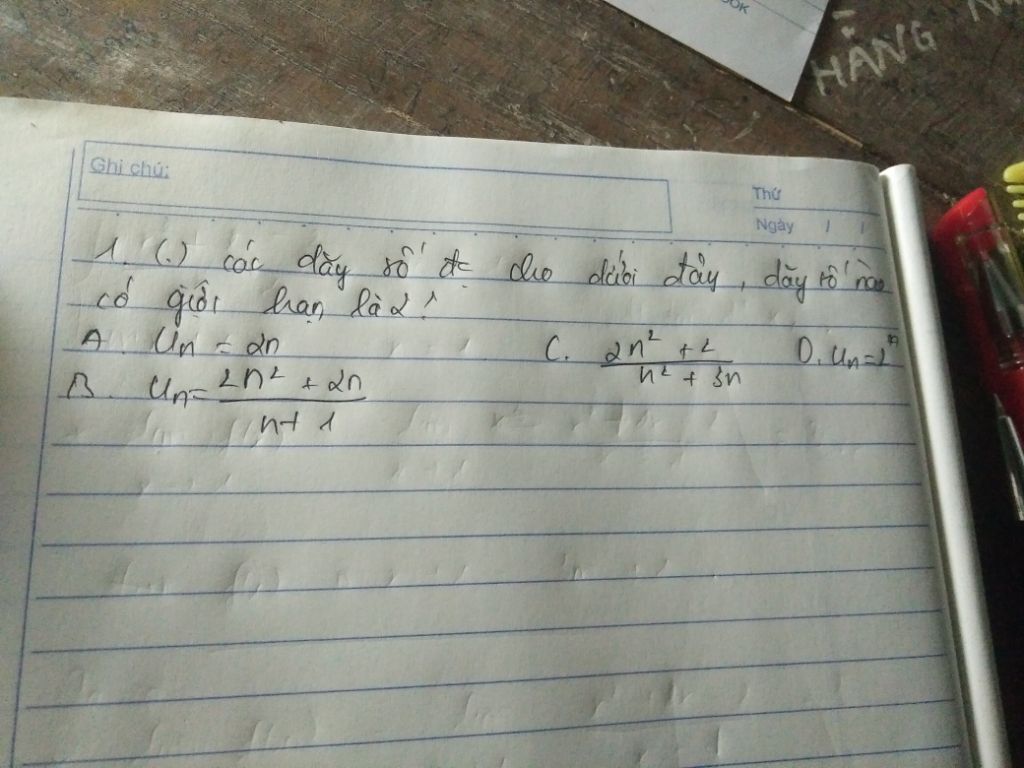 OOK
HẰNG
Ghi chú:
Thứ
Ngày / /
1. (.) các dãy số đc cho dưới đây, dãy số nào
có giới hạn là 2?
A. Un = 2n
C. 2n² + 2 / n² + 3n
D. Un = 2ⁿ
B. Un = 2n² + 2n / n + 1